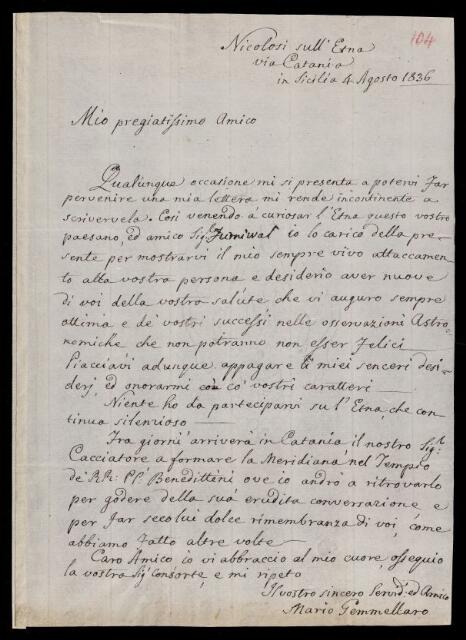 104
Nicolosi sull'Etna
via Catania
in Sicilia 4 Agosto 1836
Mio pregiatissimo Amico
Qualunqua occasione mi si presenta a potervi far
pervenire una mia lettera mi rende incontinente a
scrivervela. Così venendo a curiosar l'Etna questo vostro
paesano, ed amico Sigr. Furniwal io lo carico della pre-
sente per mostrarvi il mio sempre vivo attaccamen-
to alla vostra persona e desiderio aver nuove
di voi della vostra salute che vi auguro sempre
ottima e de' vostri successi nelle osservazioni Astro-
nomiche che non potranno non esser felici
Piacciavi adunque appagare li miei senceri desi-
derj, ed onorarmi co' vostri caratteri
Niente ho da parteciparvi su l'Etna, che con-
tinua silenzioso
Fra giorni arriverà in Catania il nostro Sigr.
Cacciatore a formare la Meridiana nel Tempio
de' RR: PP. Benedittini ove io andrò a ritrovarlo
per godere della sua erudita conversazione, e
per far secolui dolce rimembranza di voi, come
abbiamo fatto altre volte
Caro Amico io vi abbraccio al mio cuore, ossequio
la vostra Sigra Consorte, e mi ripeto
Il vostro sincero Servid. ed Amico
Mario Gemmellaro